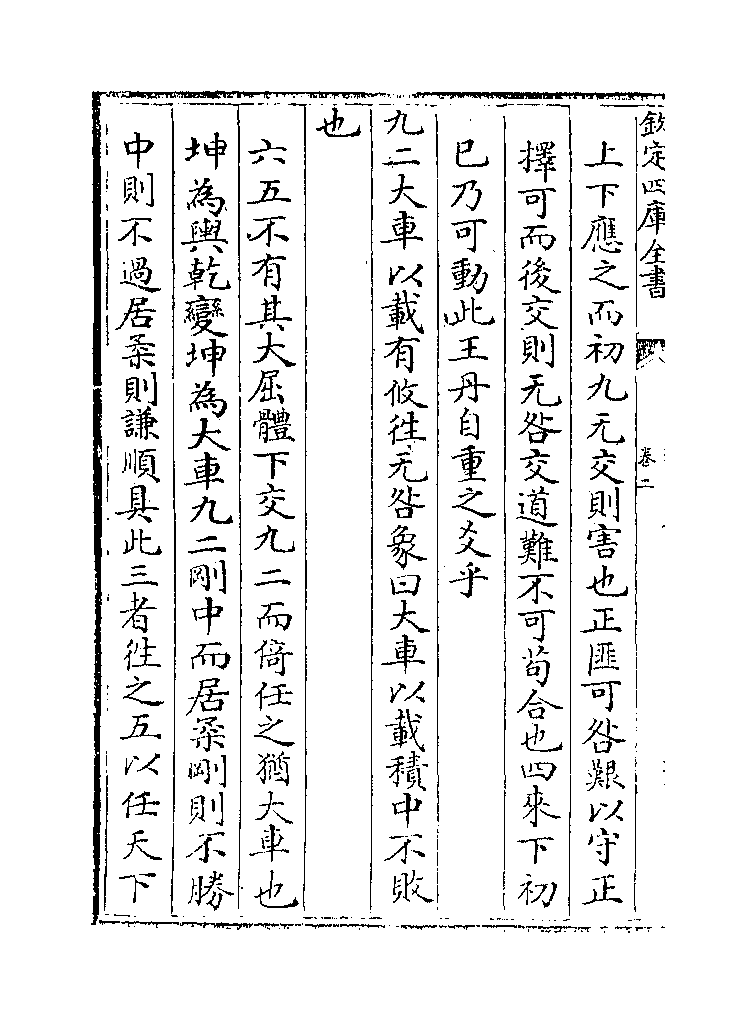 欽定四庫全書
卷二
上下應之而初九无交則害也正匪可咎艱以守正
擇可而後交則无咎交道難不可苟合也四來下初
已乃可動此王丹自重之爻乎
九二大車以載有攸徃无咎象曰大車以載積中不敗
也
六五不有其大屈體下交九二而倚任之猶大車也
坤為輿乾變坤為大車九二剛中而居柔剛則不勝
中則不過居柔則謙順具此三者徃之五以任天下